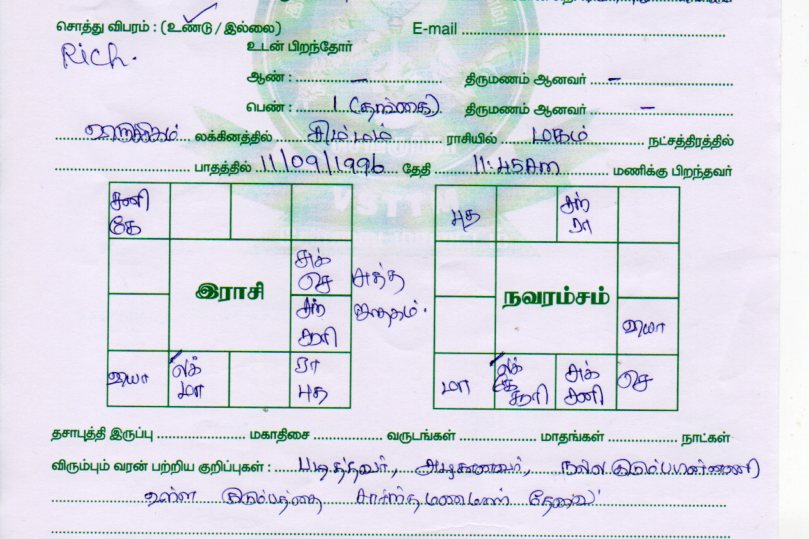 சொத்து விபரம் : (உண்டு / இல்லை) E-mail
Rich.
உடன் பிறந்தோர்
ஆண் : – திருமணம் ஆனவர் –
பெண் : 1 (தங்கை) திருமணம் ஆனவர் –
லக்கினத்தில் சிம்மம் ராசியில் மகம் நட்சத்திரத்தில்
பாதத்தில் 11/09/1996 தேதி 11:45Am மணிக்கு பிறந்தவர்
சனி
கே
புத
சந்
ரா
சுக்
செ
அத்த
இராசி
நவரம்சம்
சந்
சூரி
வியா
வியா
லக்
மா
ரா
புத
மா
லக்
கே சூரி
சுக்
சனி
செ
தசாபுத்தி இருப்பு மகாதிசை வருடங்கள் மாதங்கள் நாட்கள்
விரும்பும் வரன் பற்றிய குறிப்புகள் : படித்தவர், அழகானவர், நல்ல
உள்ள குடும்பத்தை சார்ந்த மணமகன் தேவை